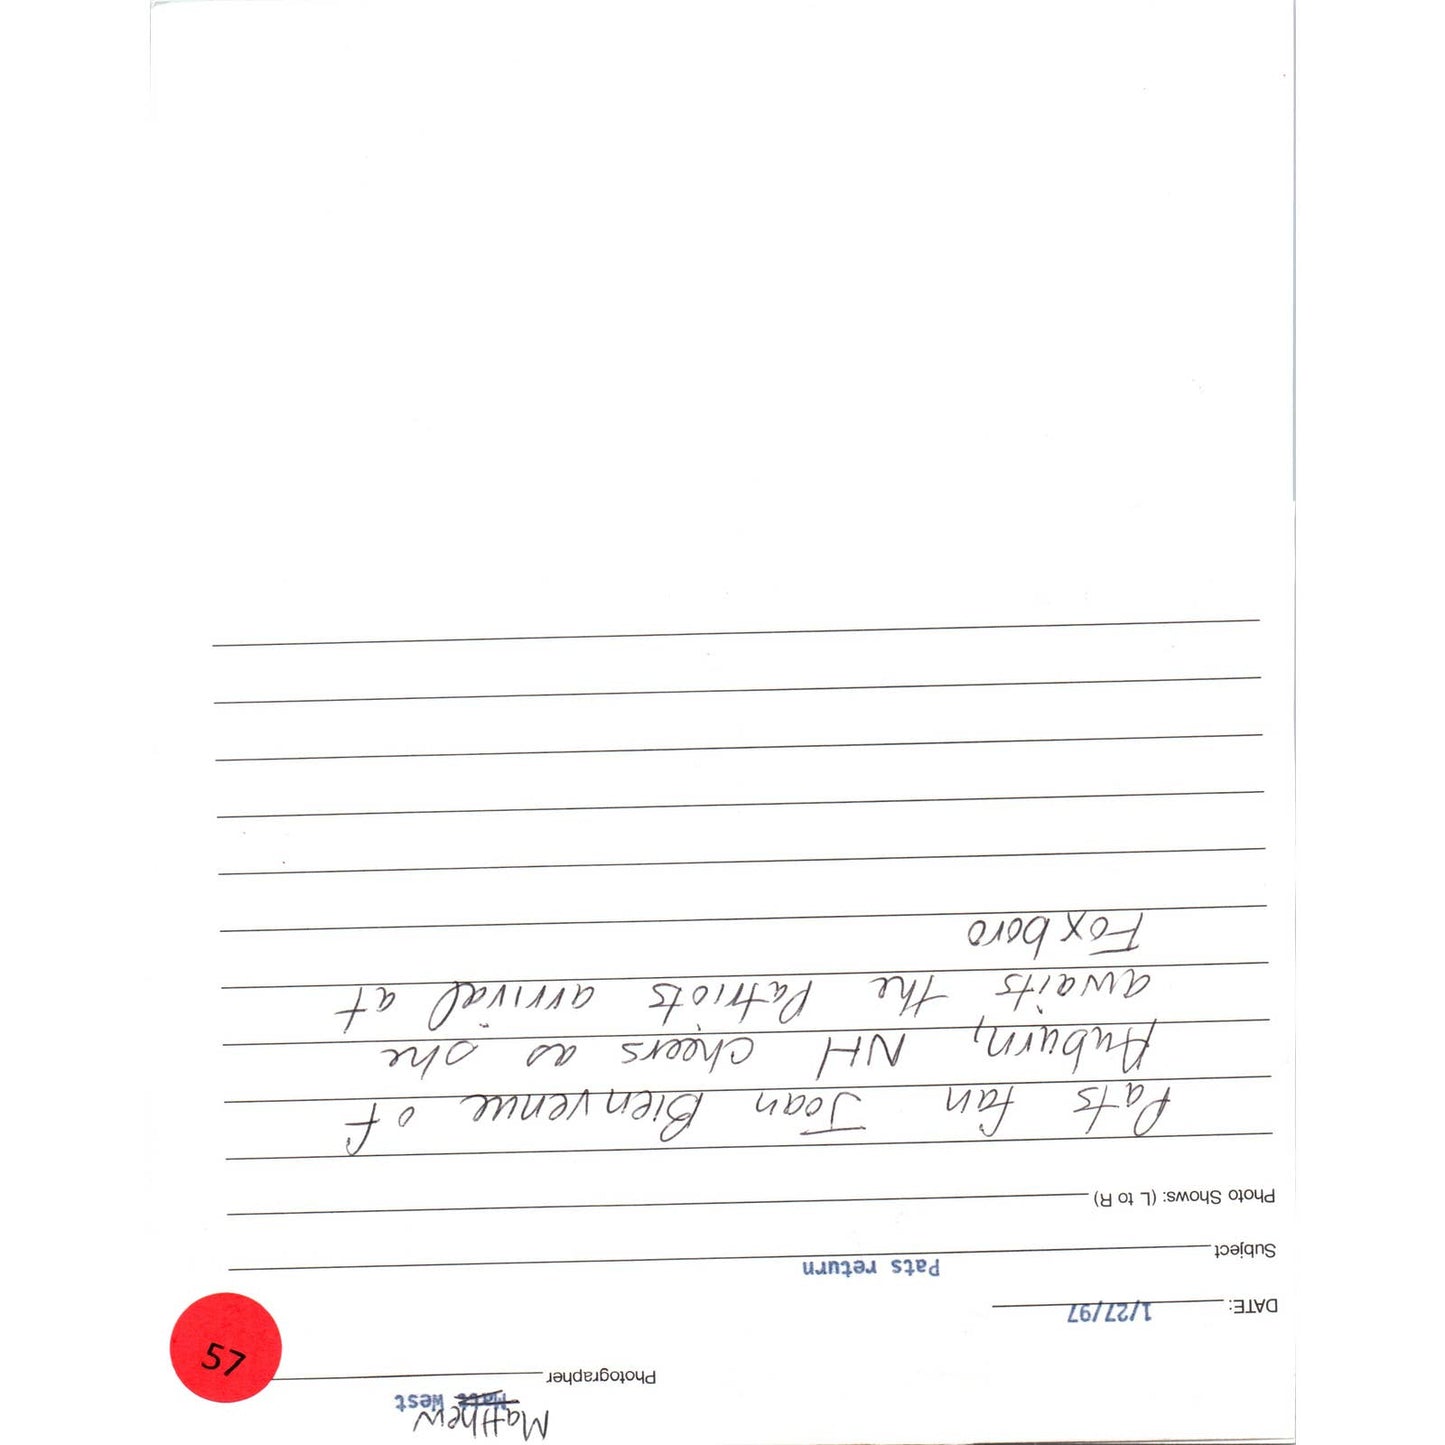 Matthew
Matt West
Photographer
57
DATE: 1/27/97
Subject Pats return
Photo Shows: (L to R)
Pats fan Joan Bienvenue of
Auburn, NH cheers as she
awaits the Patriots arrival at
Foxboro